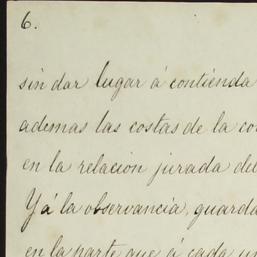 6.
sin dar lugar á contienda
ademas las costas de la
en la relacion jurada del
Yá la observancia, guarda
en la parte que á cada